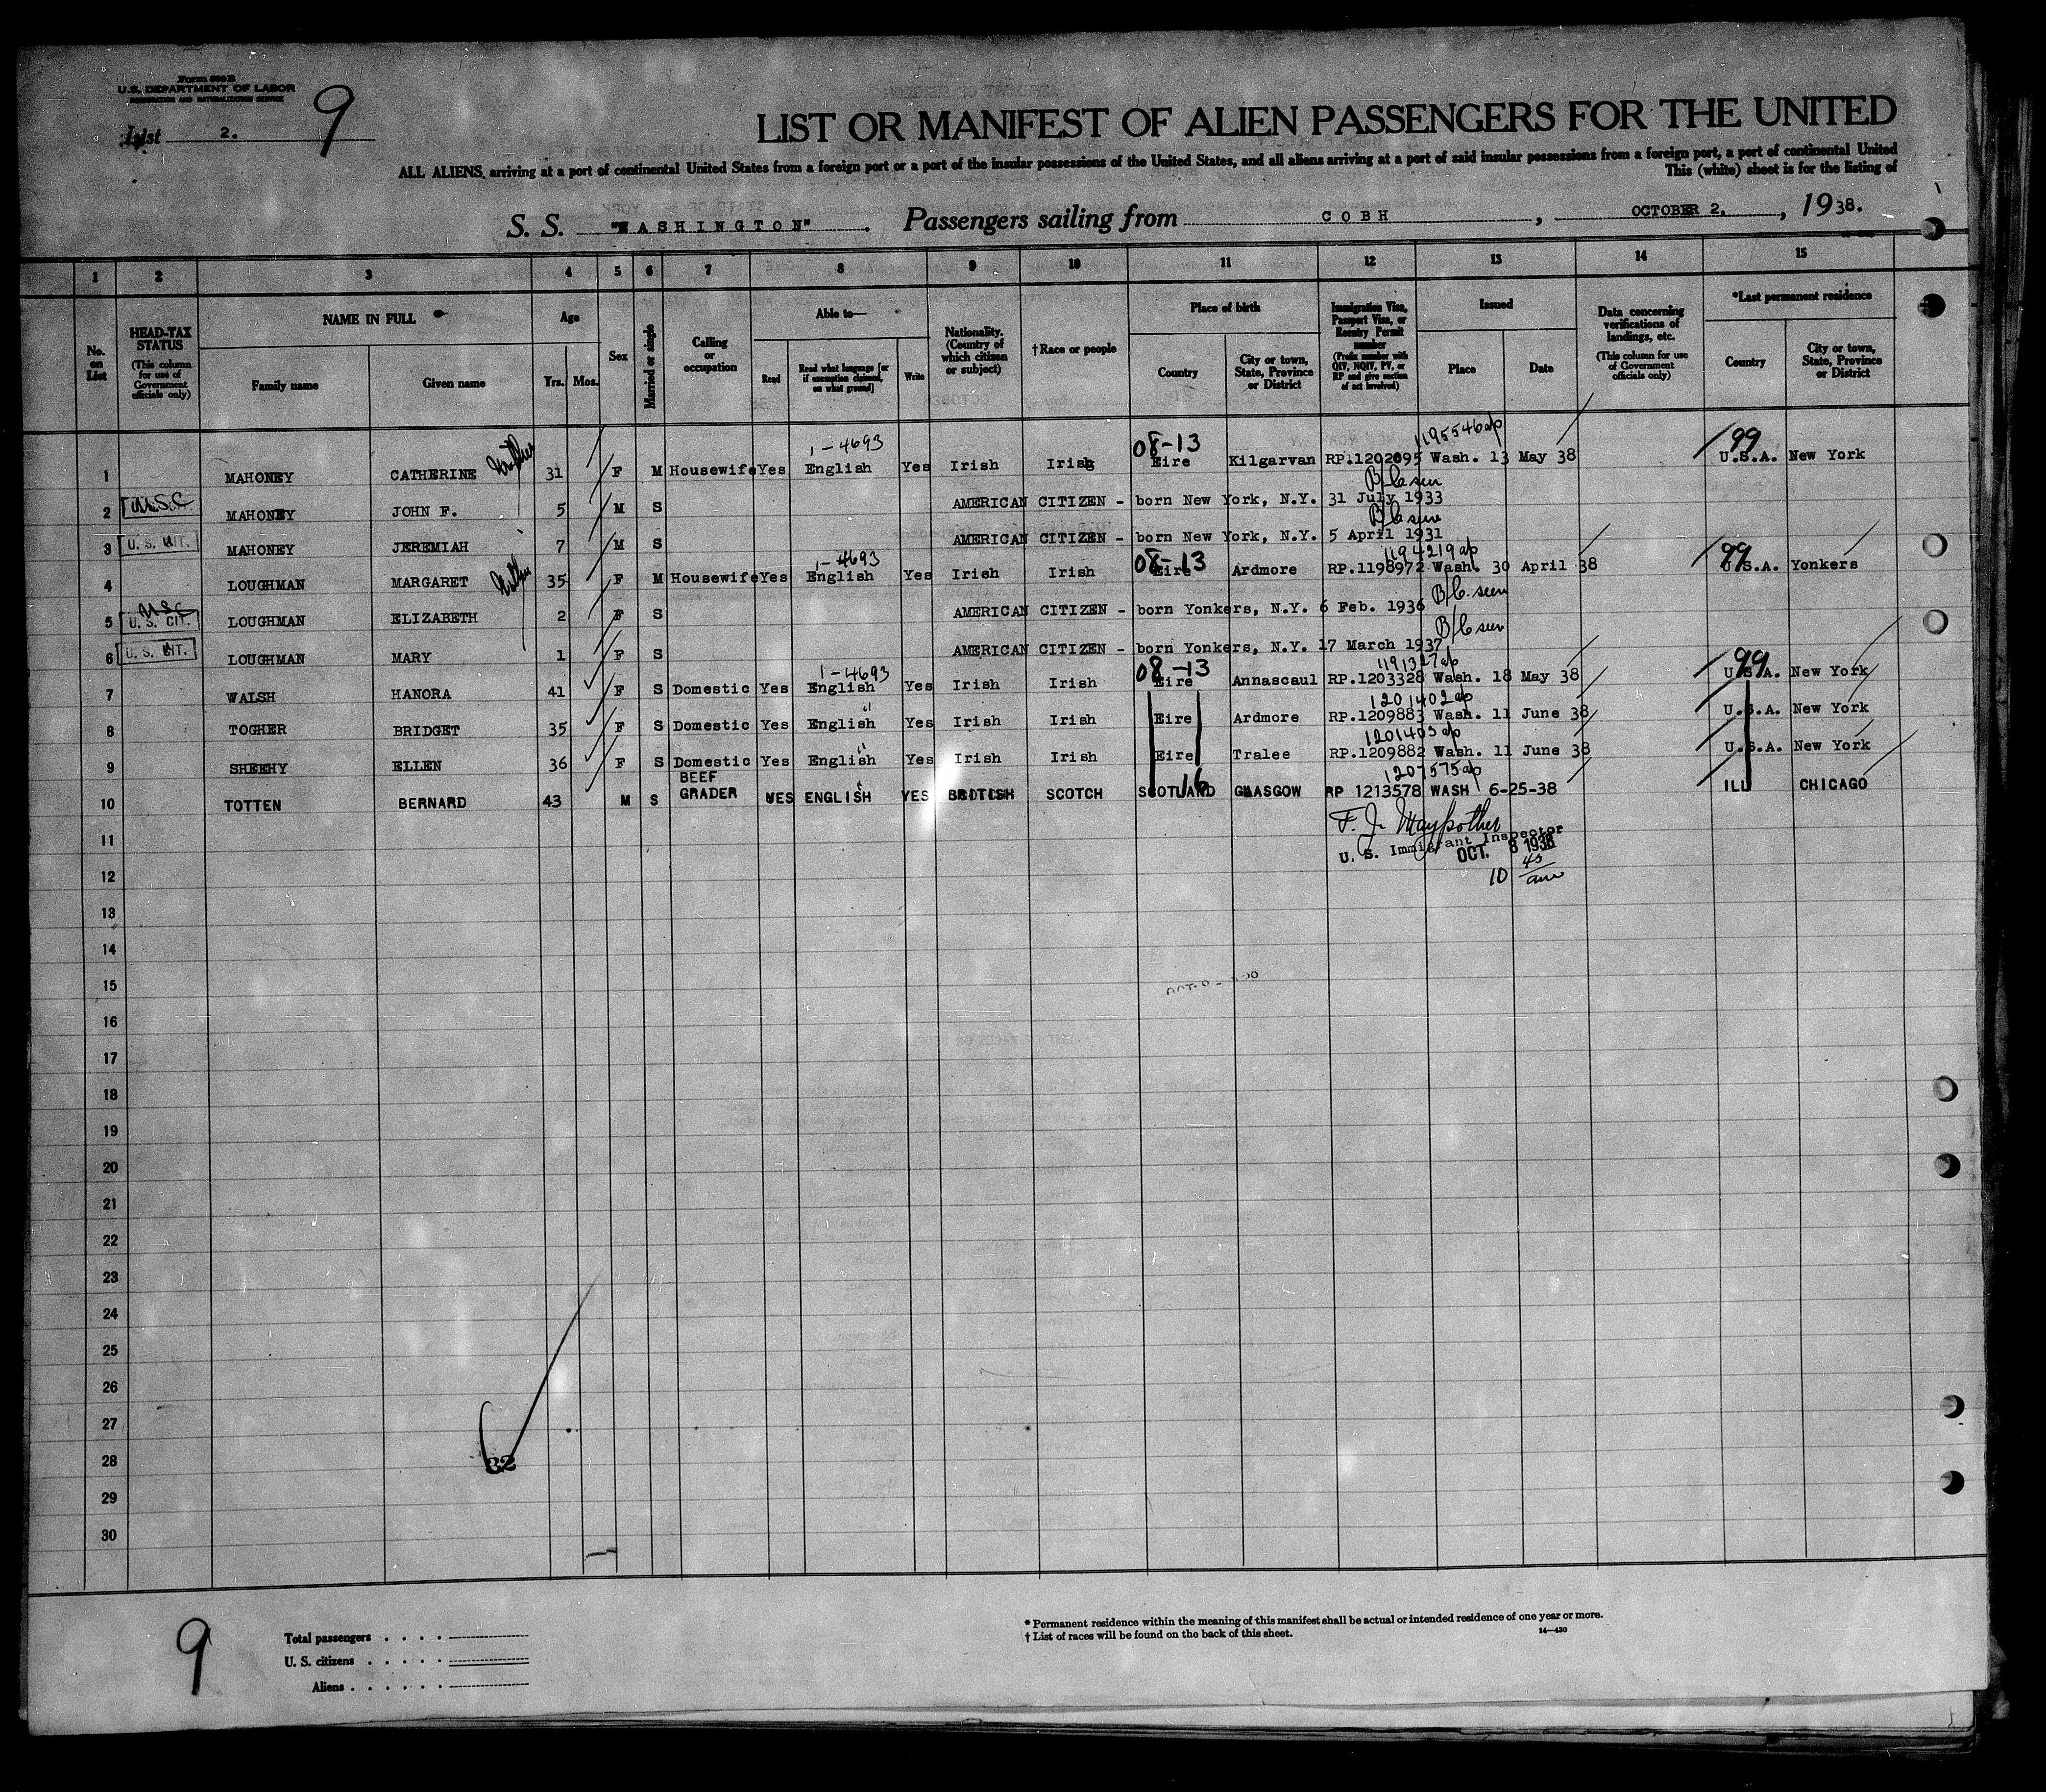 Form 500 B
U.S. DEPARTMENT OF LABOR
IMMIGRATION AND NATURALIZATION SERVICE
List 2. 9
LIST OR MANIFEST OF ALIEN PASSENGERS FOR THE UNITED
ALL ALIENS arriving at a port of continental United States from a foreign port or a port of the insular possessions of the United States, and all aliens arriving at a port of said insular possessions from a foreign port, a port of continental United
This (white) sheet is for the listing of
S. S. "WASHINGTON". Passengers sailing from COBH, OCTOBER 2, 1938.
1 2 3 4 5 6 7 8 9 10 11 12 13 14 15
No. on List
HEAD-TAX STATUS (This column for use of Government officials only)
NAME IN FULL
Family name Given name
Age
Yrs. Mos.
Sex
Married or single
Calling or occupation
Able to—
Read Read what language [or if exemption claimed, on what ground] Write
Nationality. (Country of which citizen or subject)
†Race or people
Place of birth
Country City or town, State, Province or District
Immigration Visa, Passport Visa, or Reentry Permit number (Prefix number with QIV, NQIV, PV, or RP and give section of act involved)
Issued
Place Date
Data concerning verifications of landings, etc. (This column for use of Government officials only)
*Last permanent residence
Country City or town, State, Province or District
1-4693 08-13 1195546 ap 99
1 MAHONEY CATHERINE Mother 31 F M Housewife Yes English Yes Irish Irish Eire Kilgarvan RP.1202095 Wash. 13 May 38 U.S.A. New York
B/C seen
2 USC MAHONEY JOHN F. 5 M S AMERICAN CITIZEN - born New York, N.Y. 31 July 1933
B/C seen
3 U. S. CIT. MAHONEY JEREMIAH 7 M S AMERICAN CITIZEN - born New York, N.Y. 5 April 1931
1-4693 08-13 1194219 ap 99
4 LOUGHMAN MARGARET Mother 35 F M Housewife Yes English Yes Irish Irish Eire Ardmore RP.1198972 Wash. 30 April 38 U.S.A. Yonkers
B/C seen
5 USC U. S. CIT. LOUGHMAN ELIZABETH 2 F S AMERICAN CITIZEN - born Yonkers, N.Y. 6 Feb. 1936
B/C seen
6 U. S. CIT. LOUGHMAN MARY 1 F S AMERICAN CITIZEN - born Yonkers, N.Y. 17 March 1937
1-4693 08-13 1191327 ap 99
7 WALSH HANORA 41 F S Domestic Yes English Yes Irish Irish Eire Annascaul RP.1203328 Wash. 18 May 38 U.S.A. New York
" 1201402 ap
8 TOGHER BRIDGET 35 F S Domestic Yes English Yes Irish Irish Eire Ardmore RP.1209883 Wash. 11 June 38 U.S.A. New York
" 1201403 ap
9 SHEEHY ELLEN 36 F S Domestic Yes English Yes Irish Irish Eire Tralee RP.1209882 Wash. 11 June 38 U.S.A. New York
16 1207575 ap
10 TOTTEN BERNARD 43 M S BEEF GRADER YES ENGLISH YES BRITISH SCOTCH SCOTLAND GLASGOW RP 1213578 WASH 6-25-38 ILL CHICAGO
F. J. Maypother
11 U. S. Immigrant Inspector
OCT. 8 1938
12 10 45 am
13
14
15
16
17
18
19
20
21
22
23
24
25
26
27
28 32
29
30
9
Total passengers
U. S. citizens
Aliens
* Permanent residence within the meaning of this manifest shall be actual or intended residence of one year or more.
† List of races will be found on the back of this sheet.
14—430